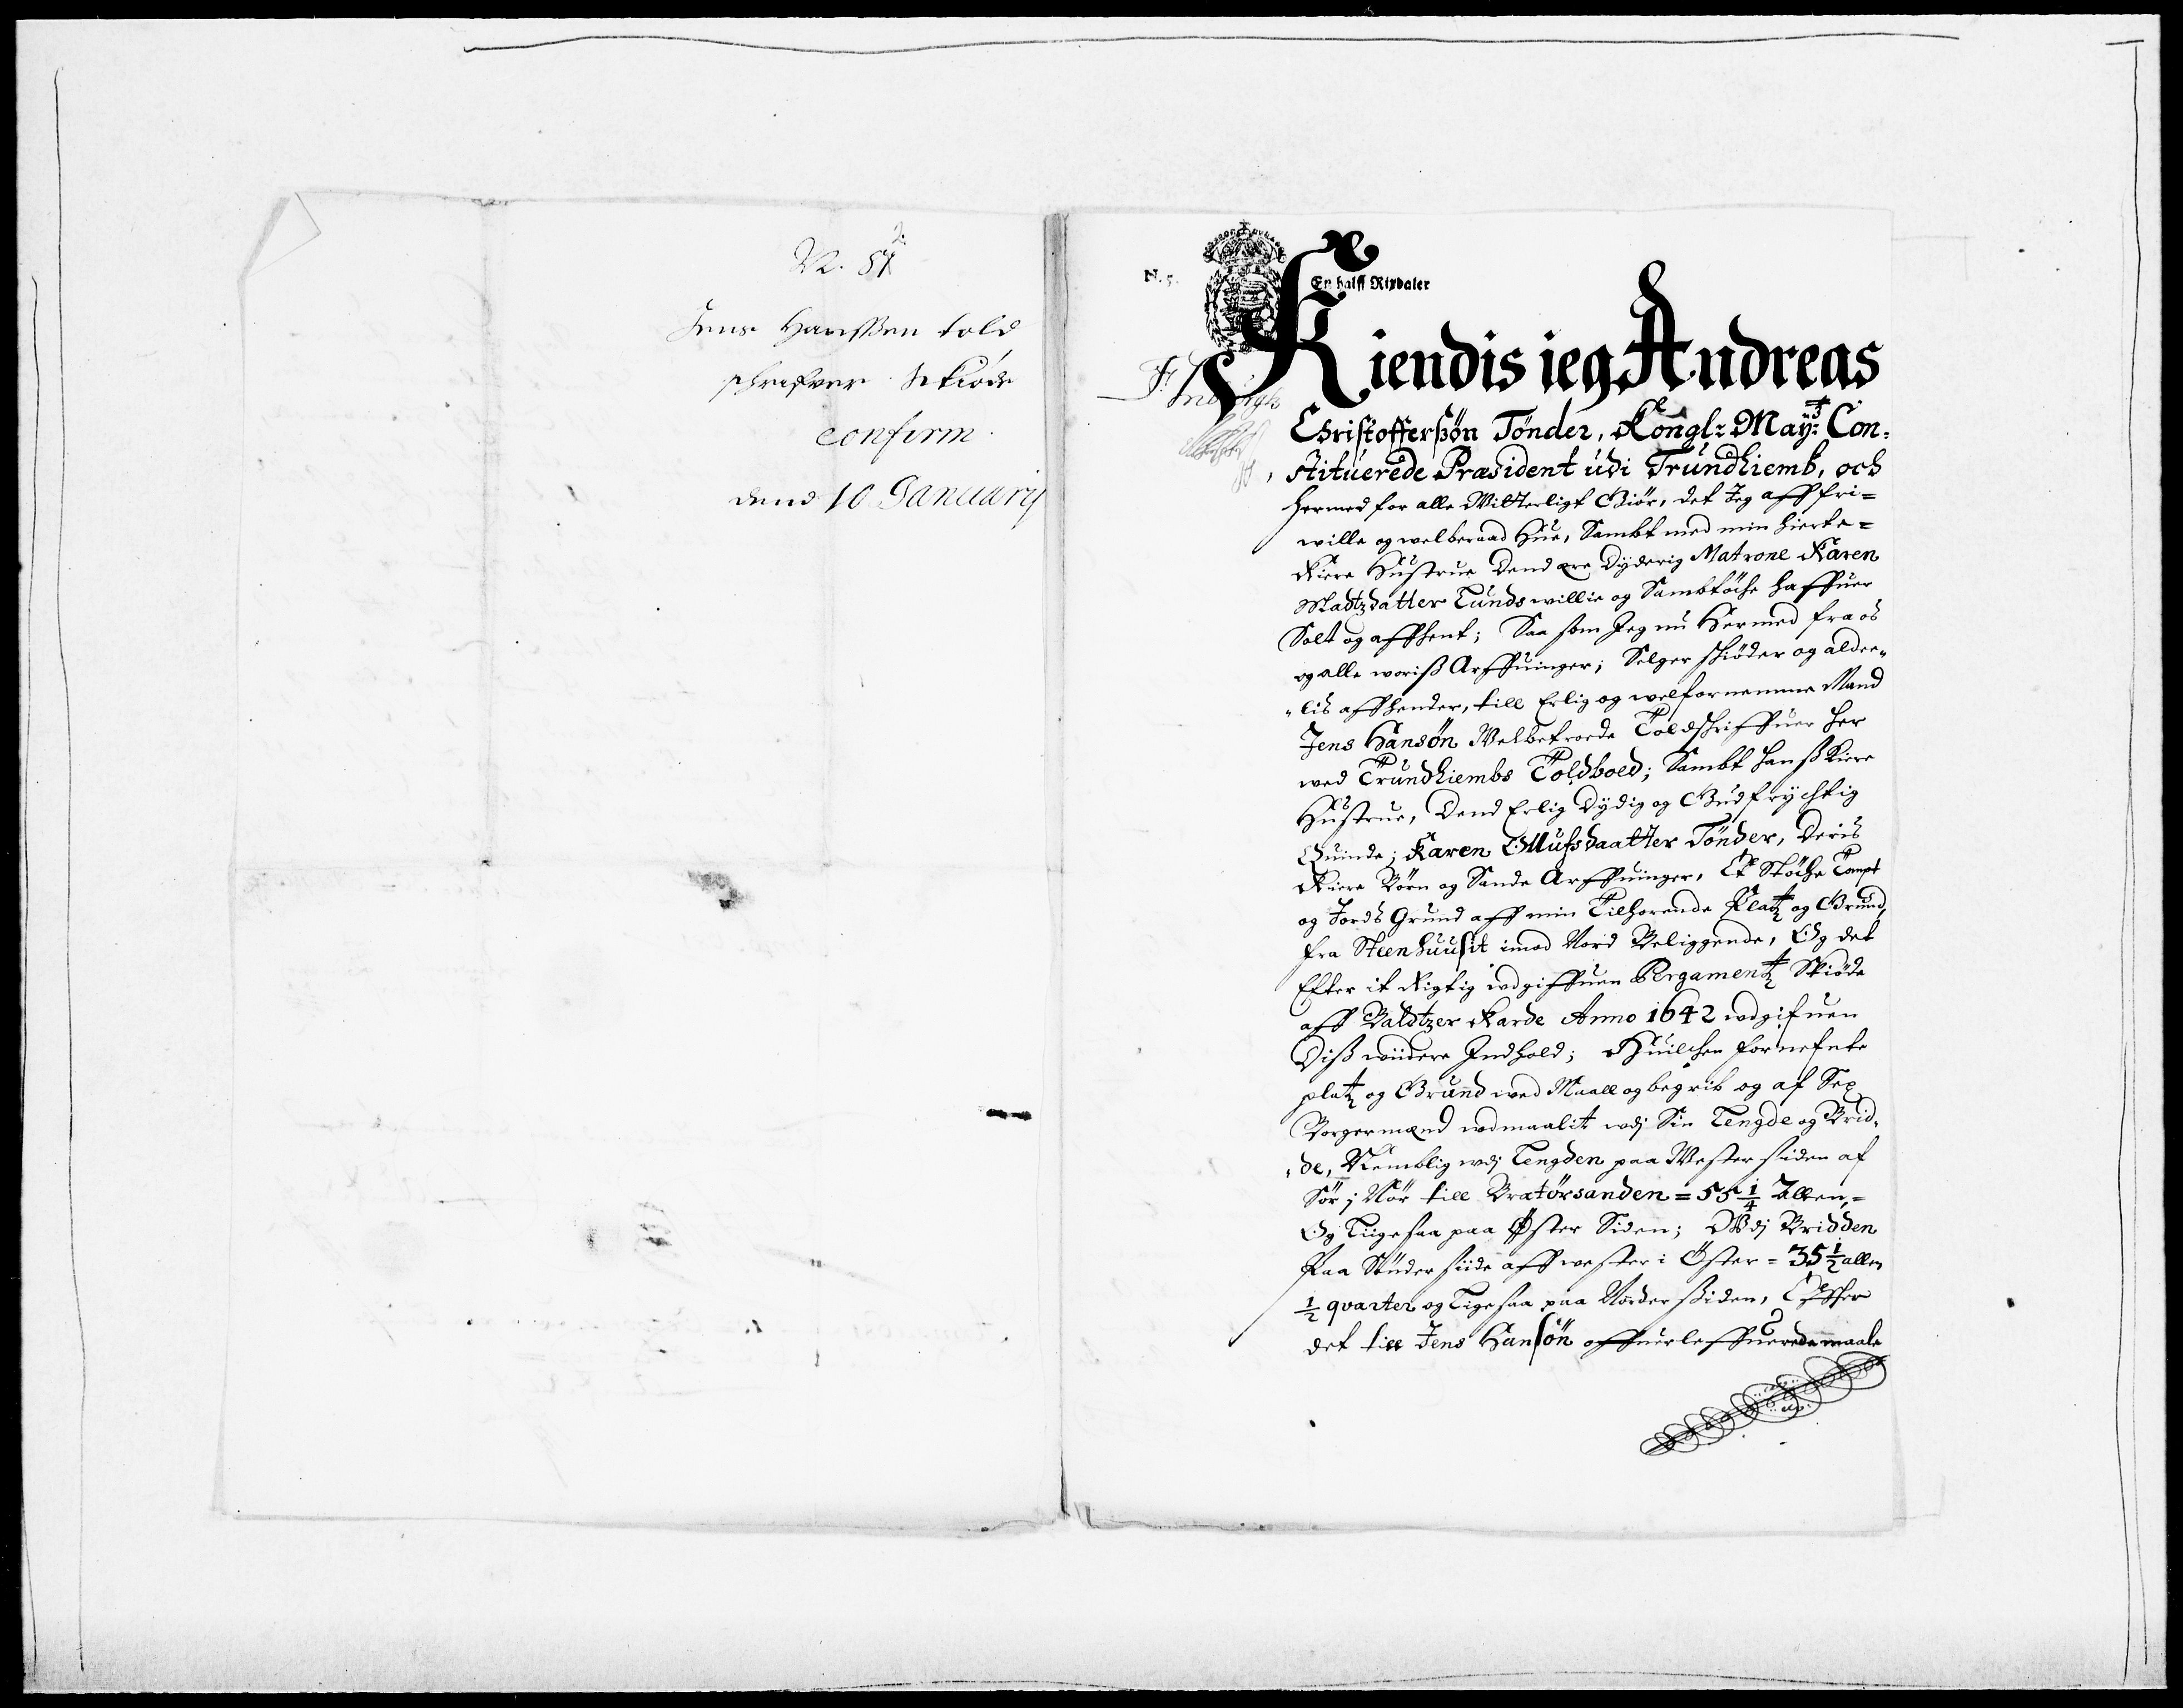 N. 5
2.
Jens Hanssen told
schrifver Skiöde
confirm.
dend 10 January
N. 5.
En halff Rixdaler
Kiendis ieg Andreas
Christofferßön Tönder, Kongl: May:ts Con-
stituerede Præsident udi Trundhiemb, och
hermed for alle Witterligt Giör, det Jeg aff fri-
wille og welberaad Hue, Sambt med min hierte-
Kiere Hustrue Dend ære Dyderig Matrone Karen
Madtzdatter Lunds willie og Sambtöche haffuer
Solt og affhent; Saa som Jeg nu Hermed fra os
og alle woriß Arffuinger; Selger skiöder og aldee-
lis affhender, till Erlig og welfornemme Mand
Jens Hansön Welbetroede Toldschriffuer her
wed Trundhiembs Toldboed; Sambt hanß Kiere
Hustrue, Dend Erlig Dydig og Gudfrychtig
Quinde; Karen Ollufsdaatter Tönder, Deris
Kiere Börn og Sande Arffuinger, Et Stöche Tompt
og Jords Grund aff min Tilhorende Platz og Grund,
fra Steenhuusit imod Nord Beliggende, Og det
Efter it Rigtig udgiffuen Pergamentz Skiöde
aff Baldtzer Karde Anno 1642 udgifuen
Diß wiidere Indhold; Huilchen fornefnte
platz og Grund wed Maall og begrib og af Sex
Borgermænd udmaalit udj Sin Lengde og Brid-
de, Nemblig udj Lengden paa Wester siden af
Sör j Nör till Bratörsanden = 55 1/4 Allen, =
Og Liige saa paa Öster Siden; Udj Bridden
Paa Synder siide aff wester i Öster = 35 1/2 allen
1/2 qvarter og Lige saa paa Norder siden, Effter
det till Jens Hansön offuerleffuerede maale